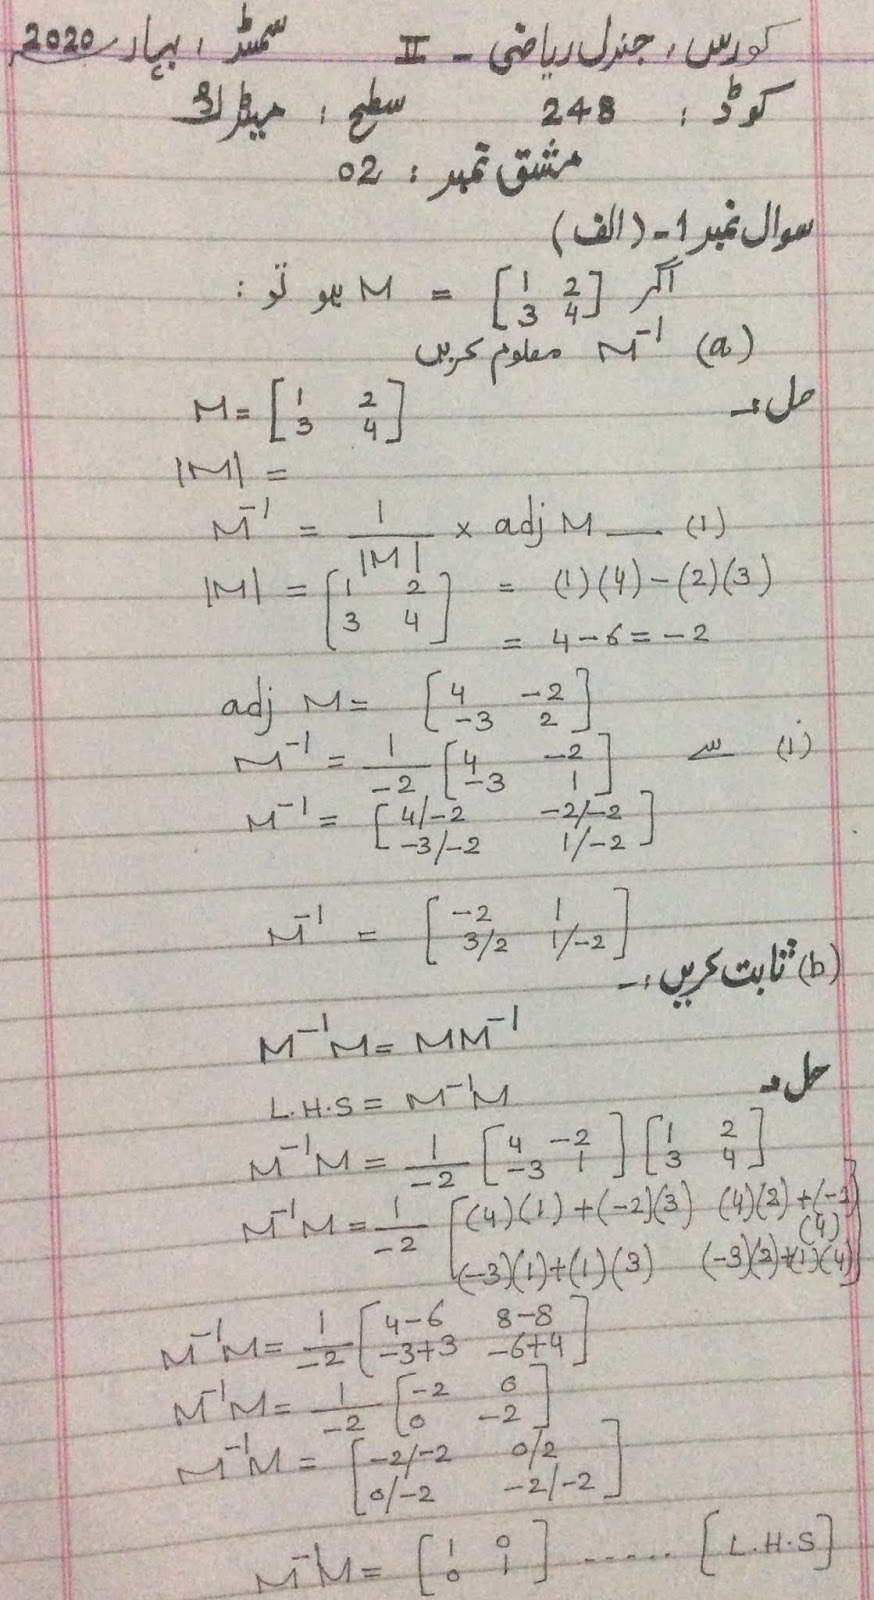 کورس: جنرل ریاضی - II سمسٹر: بہار 2020
کوڈ: 248 سطح: میٹرک
مشق نمبر: 02
سوال نمبر 1 - (الف)
اگر [1 2
3 4] = M ہو تو:
(a) M⁻¹ معلوم کریں
حل:-
M = [1 2
3 4]
|M| =
M⁻¹ = 1/|M| × adj M — (1)
|M| = [1 2
3 4] = (1)(4) - (2)(3)
= 4 - 6 = -2
adj M = [4 -2
-3 2]
(i) سے
M⁻¹ = 1/-2 [4 -2
-3 1]
M⁻¹ = [4/-2 -2/-2
-3/-2 1/-2]
M⁻¹ = [-2 1
3/2 1/-2]
(b) ثابت کریں:-
M⁻¹M = MM⁻¹
حل:-
L.H.S = M⁻¹M
M⁻¹M = 1/-2 [4 -2
-3 1] [1 2
3 4]
M⁻¹M = 1/-2 [(4)(1) + (-2)(3) (4)(2) + (-2)
(4)
(-3)(1) + (1)(3) (-3)(2) + (1)(4)]
M⁻¹M = 1/-2 [4-6 8-8
-3+3 -6+4]
M⁻¹M = 1/-2 [-2 0
0 -2]
M⁻¹M = [-2/-2 0/2
0/-2 -2/-2]
M⁻¹M = [1 0
0 1] ...... [L.H.S]